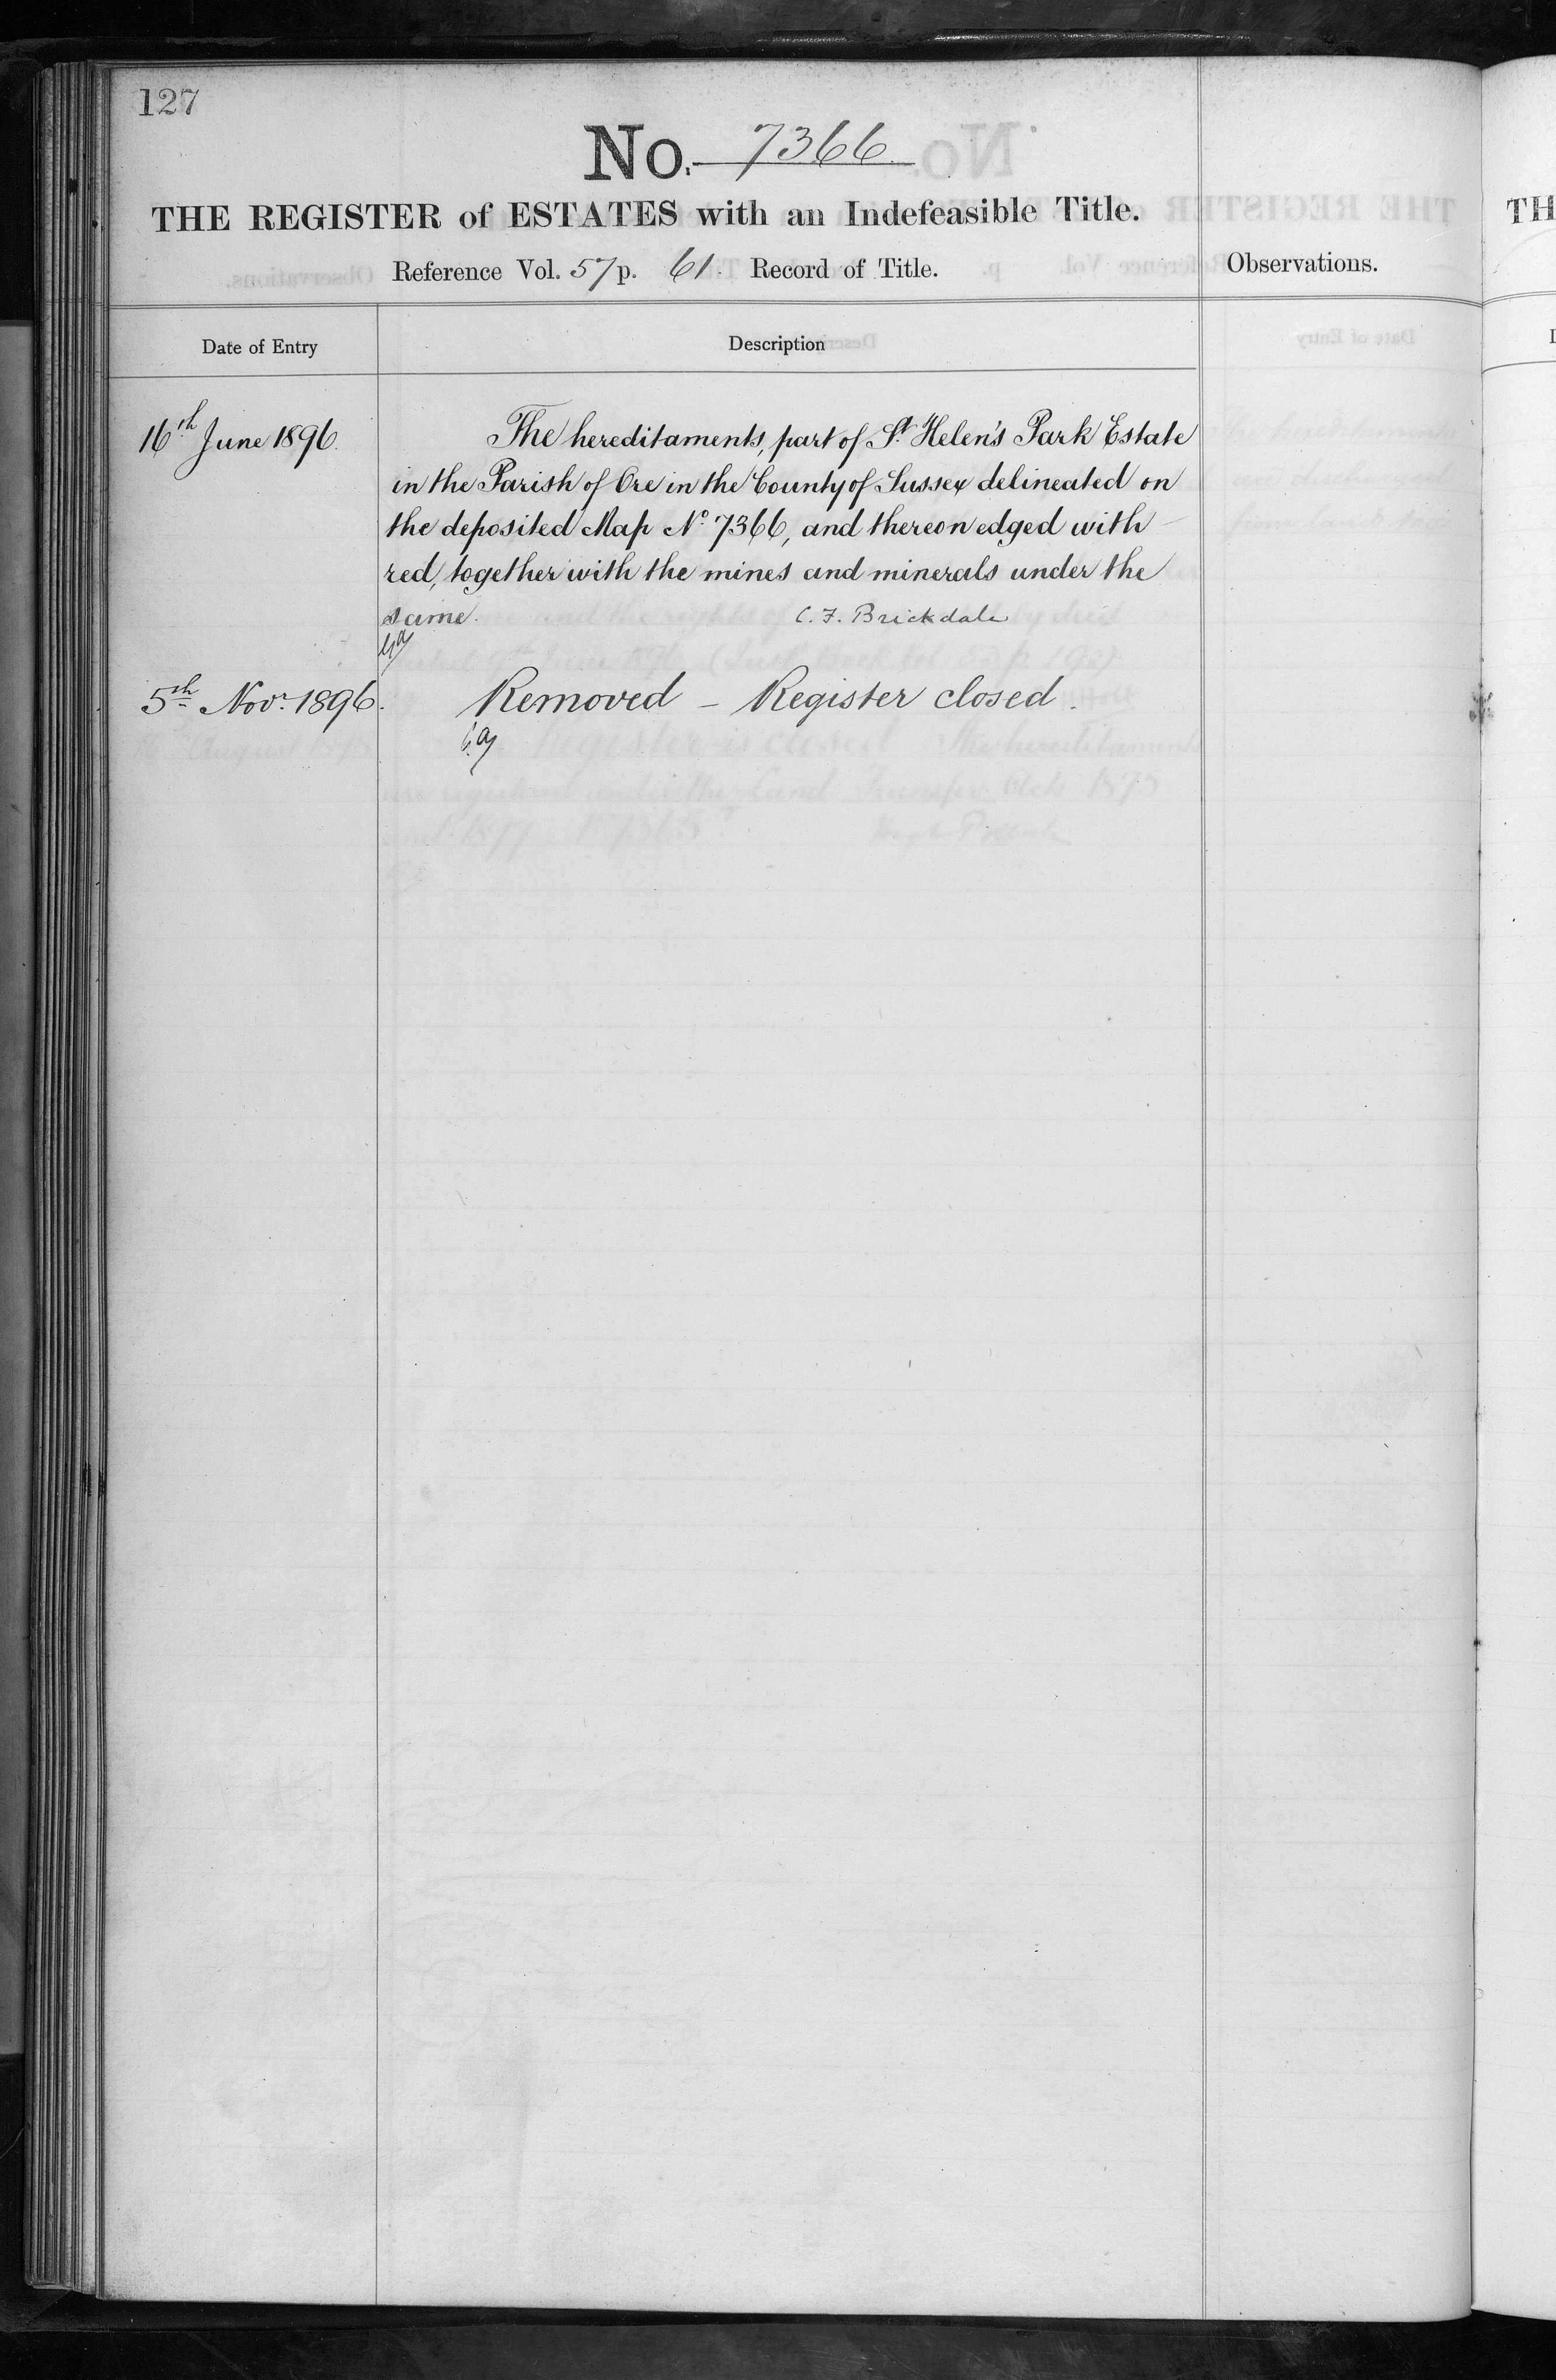 127
No. 7366.
THE REGISTER of ESTATES with an Indefeasible Title.
Reference Vol. 57 p. 61. Record of Title.
Observations.
Date of Entry
Description
16th June 1896.
The hereditaments, part of St. Helen's Park Estate
in the Parish of Ore in the County of Sussex delineated on
the deposited Map No. 7366, and thereon edged with
red, together with the mines and minerals under the
same.
C. F. Brickdale
5th Novr. 1896.
Removed – Register closed.
TH